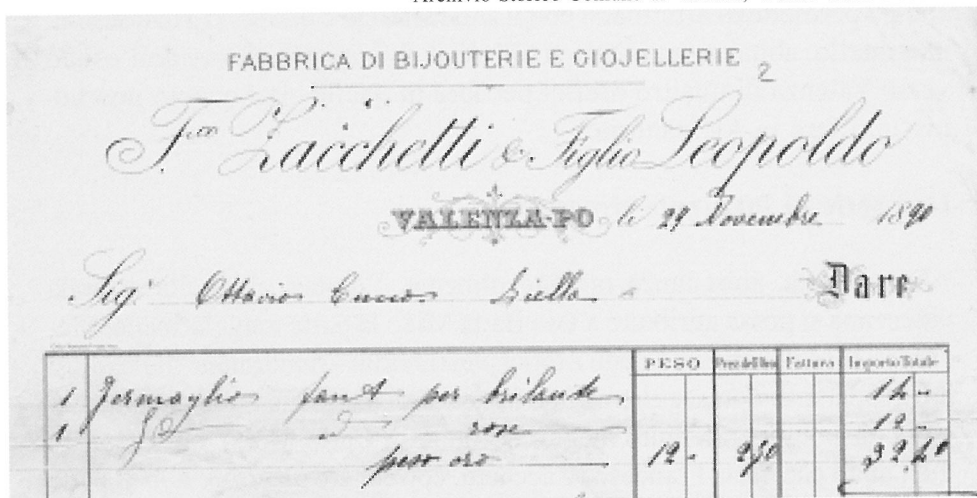 FABBRICA DI BIJOUTERIE E GIOJELLERIE 2
F.co Zacchetti & Figlio Leopoldo
VALENZA-PO li 29 Novembre 1890
Sigr Ottavio Biella Dare
PESO Fattura Importo Totale
1 Fermaglio fant per brilante 14 -
1 rose 12 -
peso oro 12 - 2,70 32,40